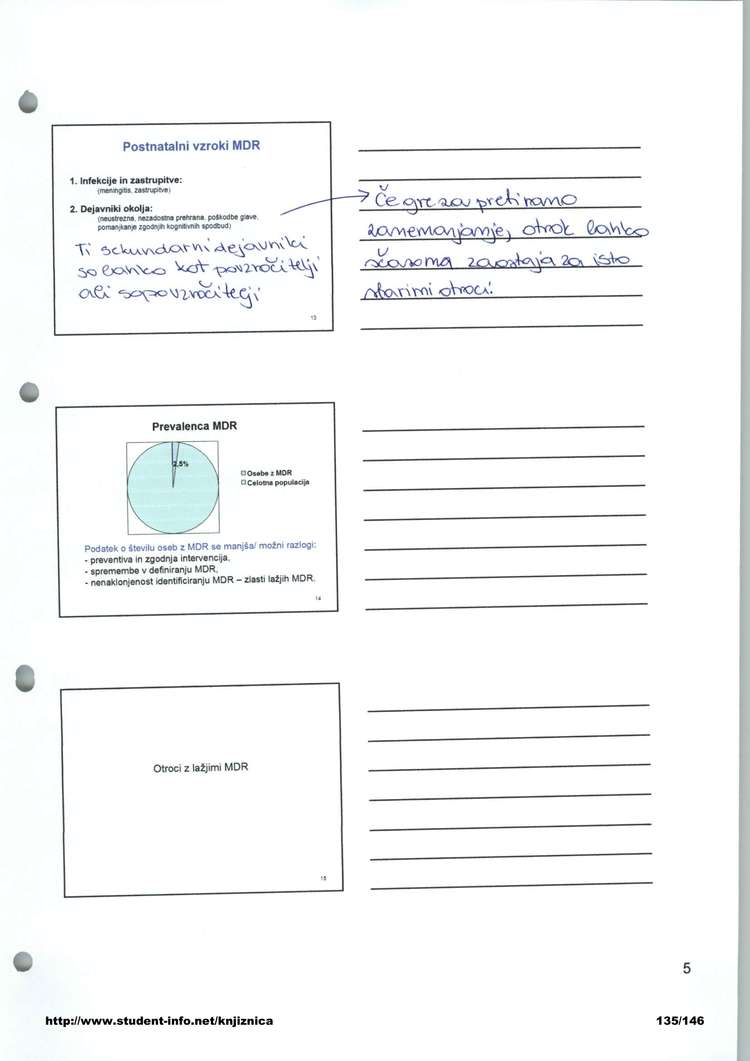 Postnatalni vzroki MDR
1. Infekcije in zastrupitve:
(meningitis, zastrupitve)
2. Dejavniki okolja:
(neustrezna, nezadostna prehrana, poškodbe glave,
pomanjkanje zgodnjih kognitivnih spodbud)
Ti sekundarni dejavniki
so lahko kot povzročitelji
ali sopovzročitelji
13
Če gre za pretirano
zanemarjanje, otrok lahko
sčasoma zaostaja za isto
starimi otroci.
Prevalenca MDR
2,5%
Osebe z MDR
Celotna populacija
Podatek o številu oseb z MDR se manjša/ možni razlogi:
- preventiva in zgodnja intervencija,
- spremembe v definiranju MDR,
- nenaklonjenost identificiranju MDR – zlasti lažjih MDR.
14
Otroci z lažjimi MDR
15
5
http://www.student-info.net/knjiznica
135/146